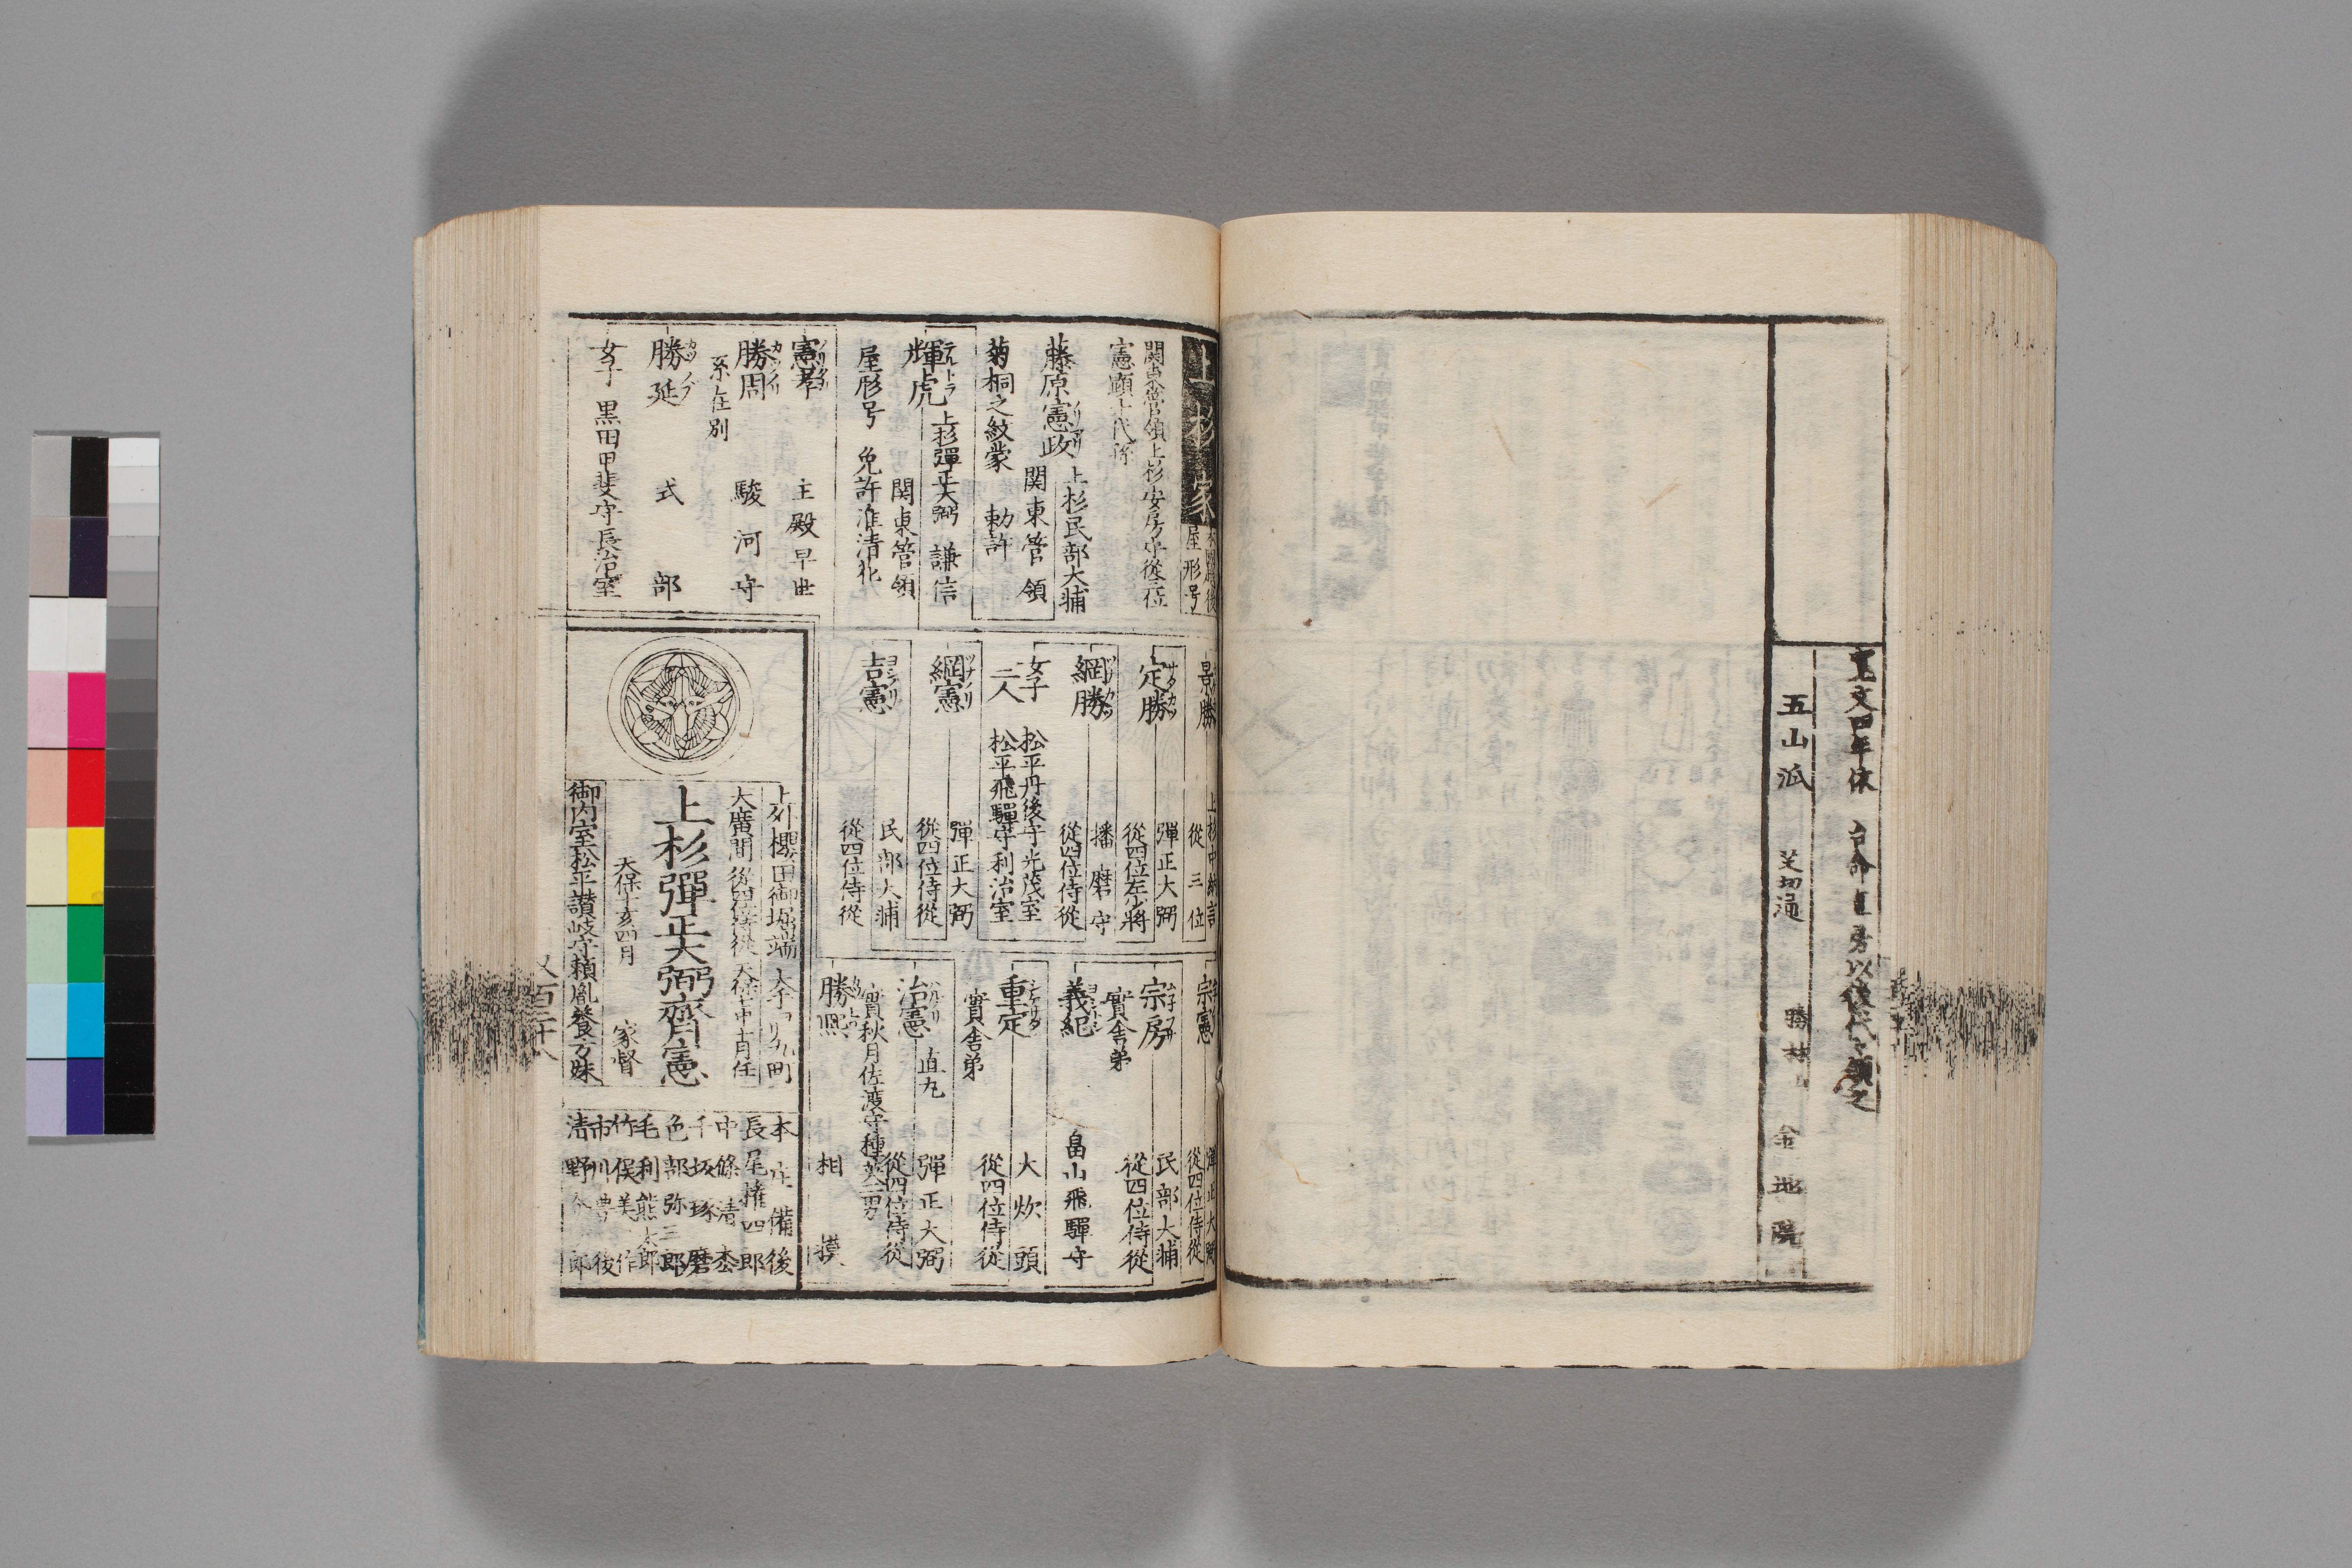 寛文四年依 台命
以後代々領之
五山派 芝切通 勝林山 金地院
上杉家 本国越後 屋形号
関東管領上杉安房守従三位
憲顕十代孫
藤原憲政 上杉民部大輔
関東管領
菊桐之紋蒙 勅許
輝虎 テルトラ 上杉彈正大弼 謙信
関東管領
屋形号 免許准清花
憲孝 ノリタカ 主殿早世
勝周 カツノリ 駿河守
系在別
勝延 カツノブ 式部
女子 黒田甲斐守長治室
景勝 上杉中納言
従三位
定勝 サダカツ 彈正大弼
従四位左少將
綱勝 ツナカツ 播磨守
従四位侍従
女子 二人
松平丹後守光茂室
松平飛騨守利治室
綱憲 ツナノリ 彈正大弼
従四位侍従
吉憲 ヨシノリ 民部大輔
従四位侍従
宗憲 彈正大弼
従四位侍従
宗房 ムネフサ 民部大輔
實舎弟 従四位侍従
義紀 畠山飛騨守
重定 シゲサダ 大炊頭
實舎弟 従四位侍従
治憲 ハルノリ 直丸 彈正大弼
従四位侍従
實秋月佐渡守種美二男
勝熙 相摸
上 外櫻田御堀端 大手ヨリ九町
大廣間 従四位侍従
上杉彈正大弼齊憲
天保十亥四月 家督
御内室松平讃岐守頼胤養方妹
本庄備後
長尾権四郎
中條清
千坂琢磨
色部弥三郎
毛利熊太郎
竹俣美作
市川豊後
清野 郎
又百三十八